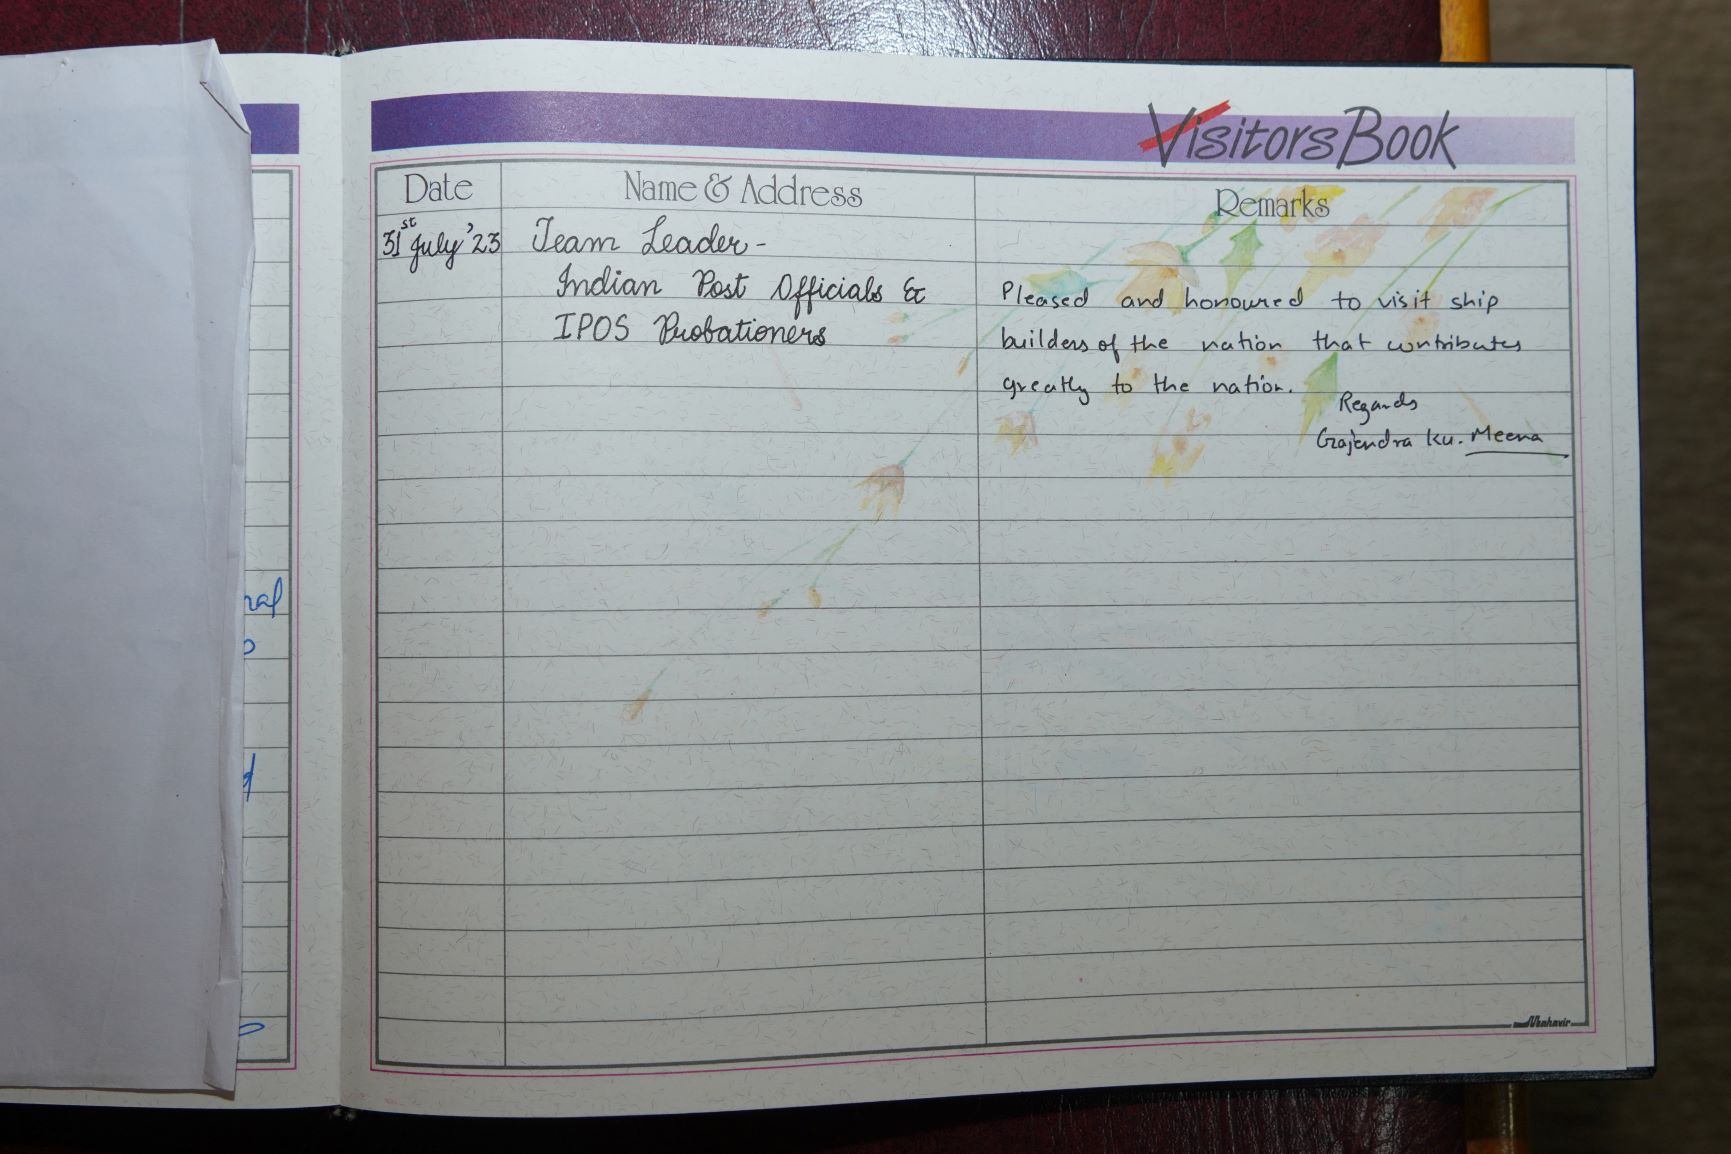 Visitors Book
Date Name & Address Remarks
31st July '23 Team Leader-
Indian Post Officials &
IPOS Probationers
Pleased and honoured to visit ship
builders of the nation that contributes
greatly to the nation.
Regards
Gajendra Ku. Meena
Mahavir